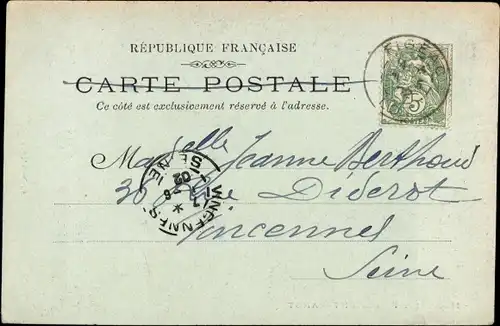 RÉPUBLIQUE FRANÇAISE
FIGEAC
CARTE POSTALE
5
Ce côté est exclusivement réservé à l'adresse.
Mademoiselle Jeanne Berthoud
30 Rue Diderot
Vincennes
Seine
VINCENNES
SEINE
02